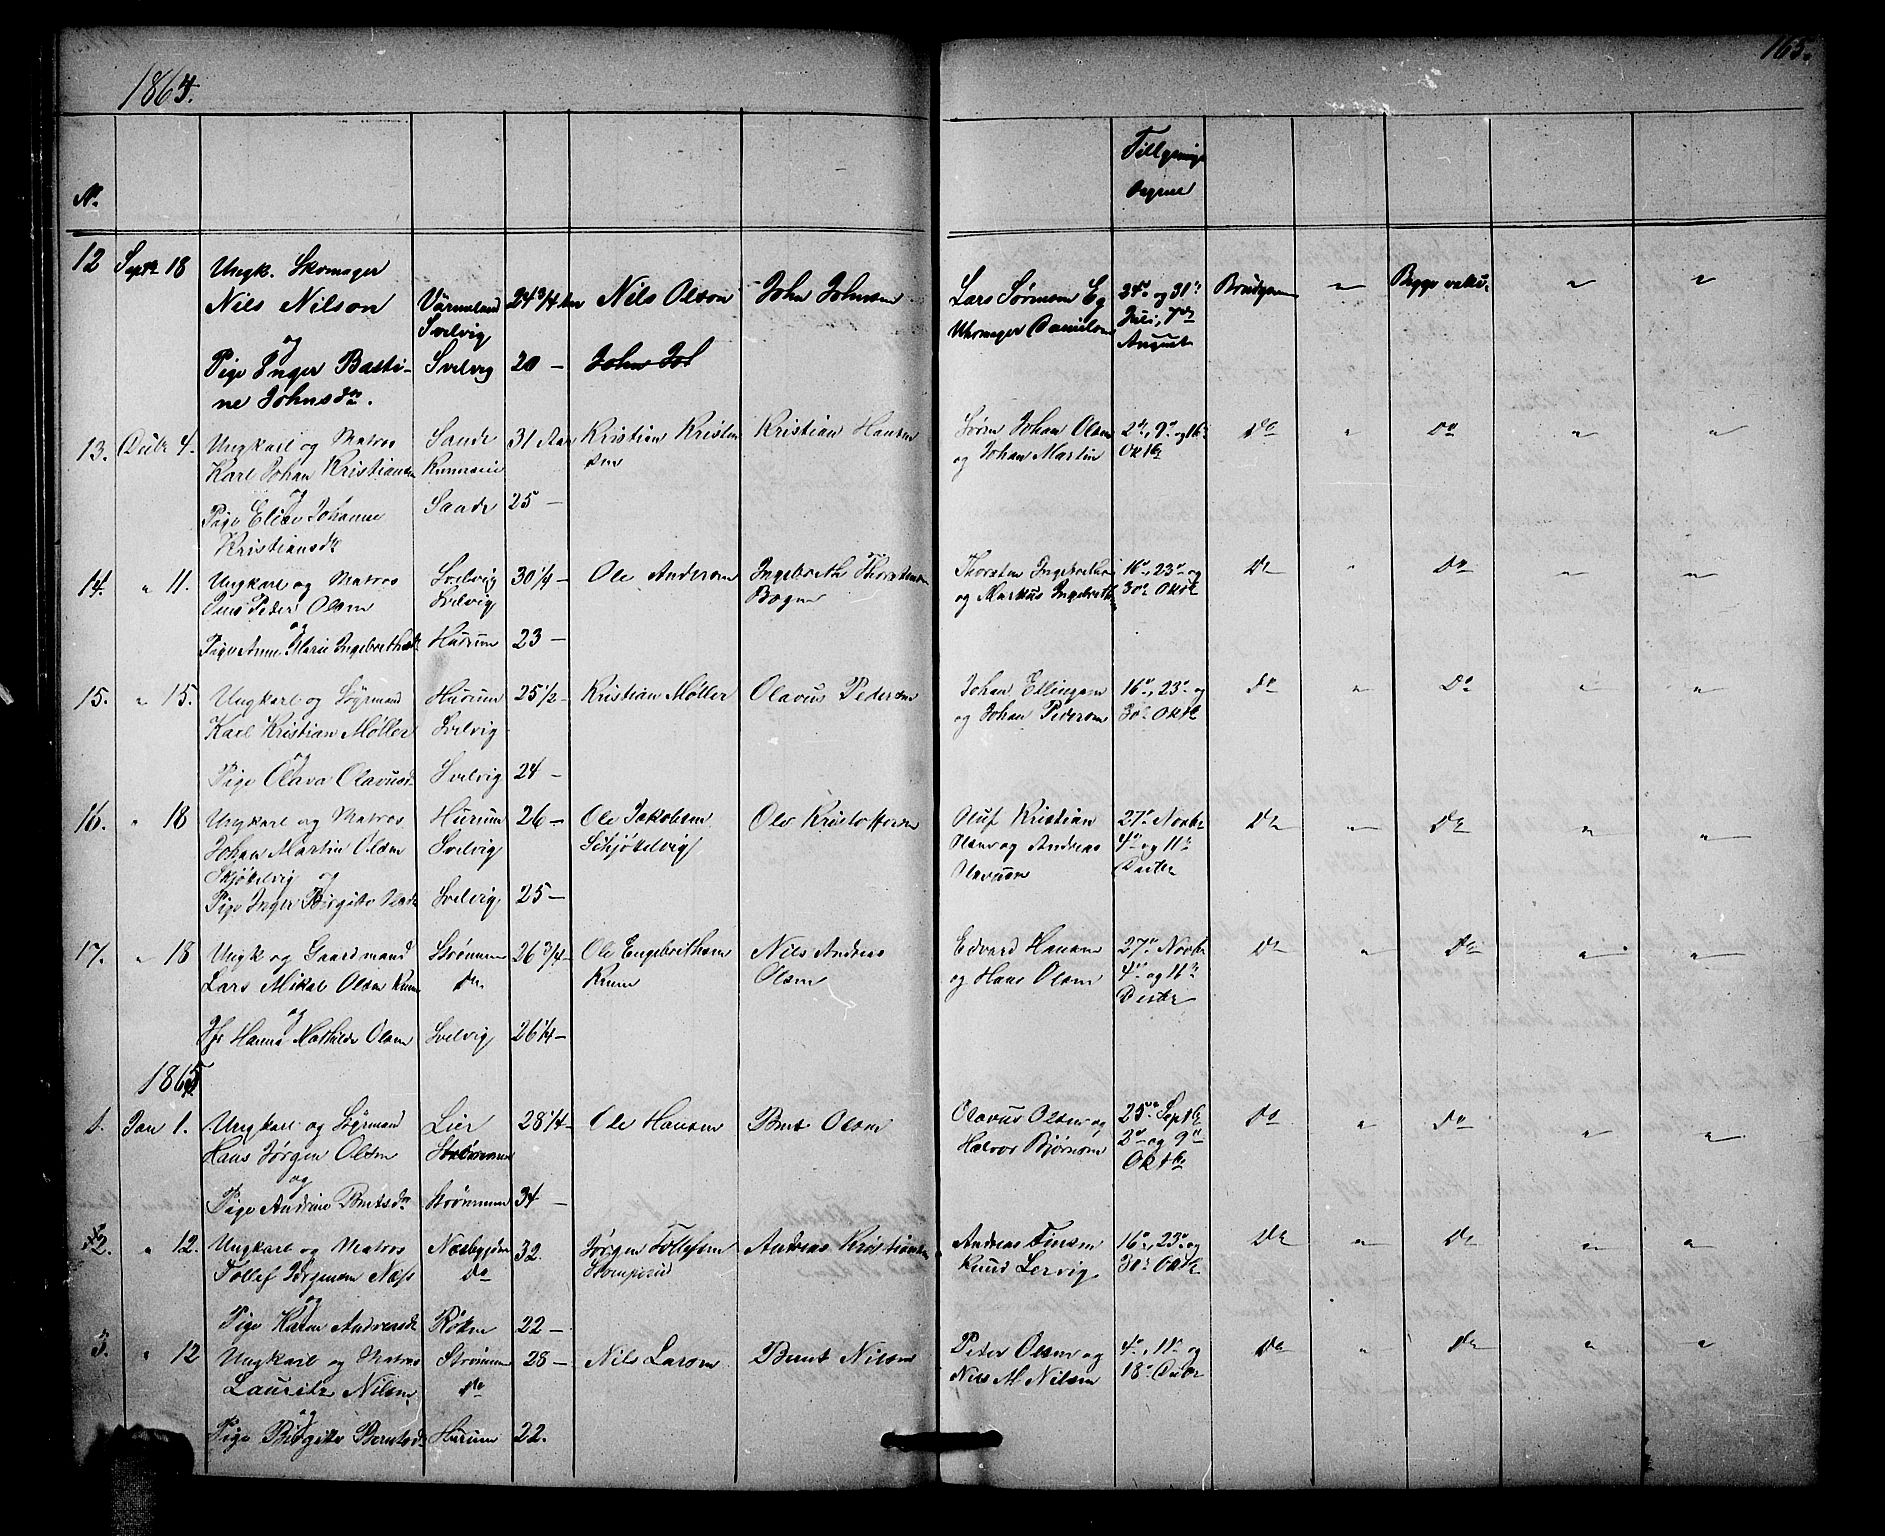 1864.
165.
Tillysnings
Dagene
No.
12 Septbr 18 Ungk. Skomager
Nils Nilson Värmeland 24 3/4 Aar Nils Olson John Johnsen
Svelvig
og
Pige Inger Basti- Svelvig 20 —
ne Johnsdr.
Lars Sørensen Eg 24de og 31te Brudgom " Begge vakc. " "
Uhrmager Danielsen Juli, 7de
August
13. Dcbr 4. Ungkarl og Matros Sande 31 Aar Kristian Kristen Kristian Hansen
Karl Johan Kristiansen sen
og
Pige Elise Johanne Sande 25 —
Kristiansdr
Søren Johan Olsen 2de, 9de og 16de Do " Do " "
og Johan Martin Oktbr
14. " 11. Ungkarl og Matros Svelvig 30 1/4 — Ole Andersen Ingebreth Thorstensen
Jens Peder Olsen Svelvig Bogen
og
Pige Anne Marie Ingebrethsdr Hurum 23 —
Thorsten Ingebrethsen 16de, 23de og Do " Do " "
og Markus Ingebrethsen 30te Oktbr
15. " 15. Ungkarl og Styrmand Hurum 25 1/2 — Kristian Møller Olavus Pedersen
Karl Kristian Møller Svelvig
og
Pige Olava Olavusdr Svelvig 24 —
Johan Ellingsen 16de, 23de og Do " Do " "
og Johan Pedersen 30te Oktbr
16. " 18 Ungkarl og Matros Hurum 26 — Ole Jakobsen Ole Kristoffersen
Johan Martin Olsen Svelvig Schjøtelvig
Skjøtelvig og
Pige Inger Birgitte Olsdr Svelvig 25 —
Oluf Kristian 27de Novbr Do " Do " "
Olsen og Andreas 4de og 11te
Olavusen Decbr
17. " 18 Ungk og Gaardmand Strømmen 26 3/4 — Ole Engebrethsen Nils Andreas
Lars Mikal Olsen Krum do Krum Olsen
og
Jfr Hanna Mathilde Olsen Svelvig 26 1/4 —
Edvard Hansen 27de Novbr Do " Do " "
og Hans Olsen 4de og 11te
Decbr
1865
1. Jan 1. Ungkarl og Styrmand Lier 28 1/4 — Ole Hansen Bent Olsen
Hans Jørgen Olsen Strømmen
og
Pige Andrine Bentsdr Strømmen 34 —
Olavus Olsen og 25de Septbr Do " Do " "
Halvor Bjørnsen 2de og 9de
Oktbr
2. " 12. Ungkarl og Matros Næsbygden 32. Jørgen Tollefsen Andreas Kristiansen
Tollef Jørgensen Næss Do
og
Pige Karen Andreasdr Røken 22 —
Andreas Finsen 16de, 23de og Do " Do " "
Knud Lervig 30te Oktbr
3. " 12 Ungkarl og Matros Strømmen 28 — Nils Larsen Bernt Nilsen
Lauritz Nilsen do
og
Pige Birgitte Berntsdr Hurum 22.
Peter Olsen og 4de, 11te og Do " Do " "
Nils M Nilsen 18de Decbr